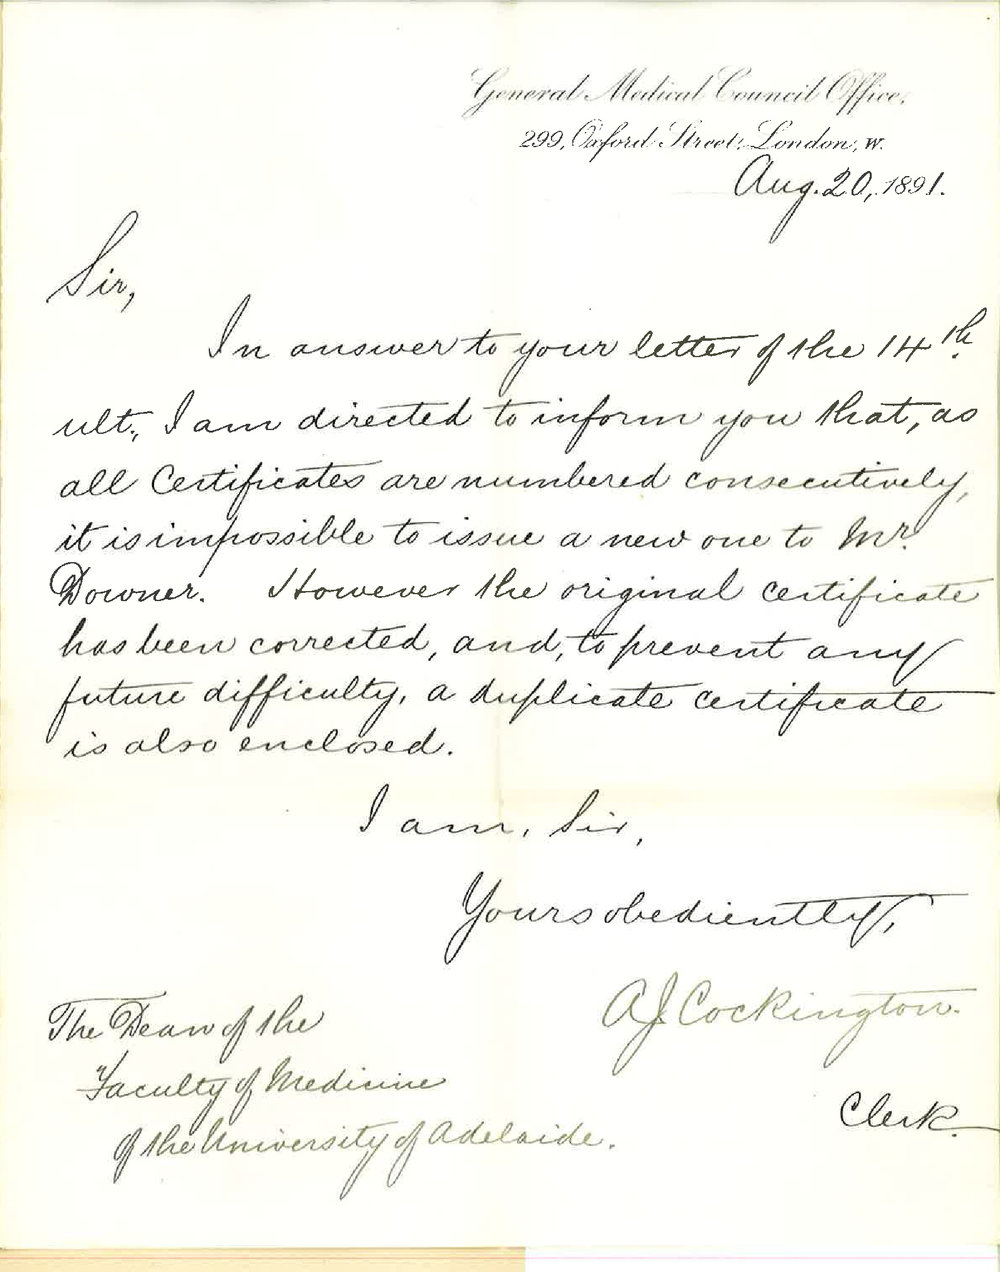 General Medical Council Office,
299, Oxford Street, London, W.
Aug. 20, 1891.
Sir,
In answer to your letter of the 14th
ult., I am directed to inform you that, as
all Certificates are numbered consecutively,
it is impossible to issue a new one to Mr.
Downer. However the original certificate
has been corrected, and, to prevent any
future difficulty, a duplicate certificate
is also enclosed.
I am, Sir,
Yours obediently,
A J Cockington.
Clerk.
The Dean of the
Faculty of Medicine
of the University of Adelaide.